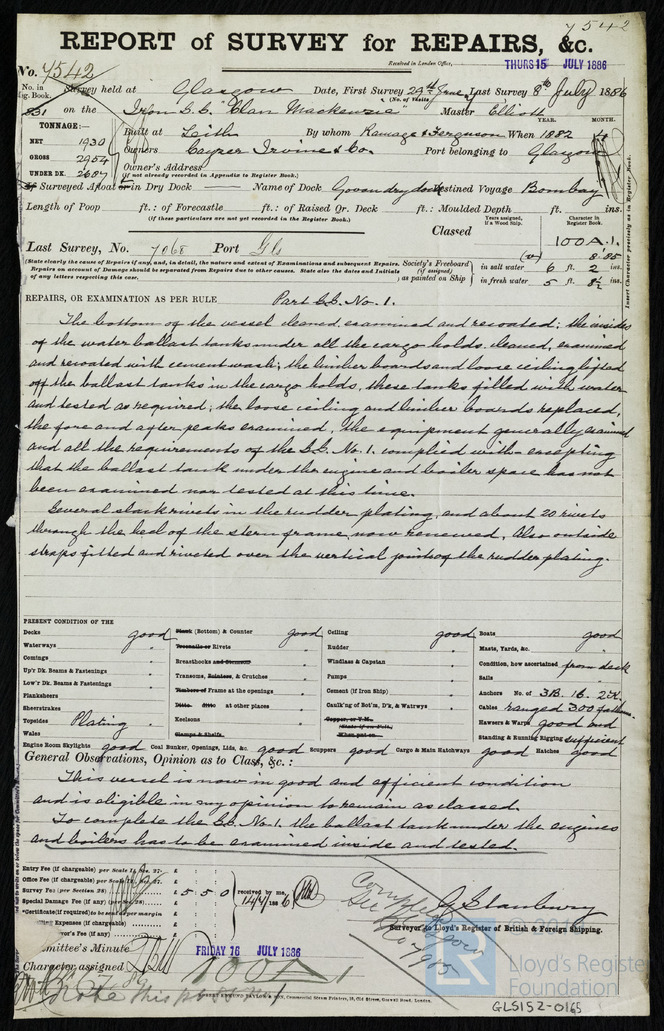 7542
REPORT of SURVEY for REPAIRS, &c.
Received in London Office, THURS 15 JULY 1886
No. 7542
No. in Reg. Book. Survey held at Glasgow Date, First Survey 29th June Last Survey 8th July 1886
(No. of Visits)
831 on the Iron S.S. "Clan Mackenzie" Master Elliott
TONNAGE:— YEAR. MONTH.
Built at Leith By whom Ramage & Ferguson When 1882 4
NET 1930
GROSS 2954 Owners Cayzer Irvine & Co. Port belonging to Glasgow
UNDER DK. 2607 Owner's Address
(if not already recorded in Appendix to Register Book.)
If Surveyed Afloat or in Dry Dock Name of Dock Govan dry dock Destined Voyage Bombay
Length of Poop ft.: of Forecastle ft.: of Raised Qr. Deck ft.: Moulded Depth ft. ins.
(if these particulars are not yet recorded in the Register Book.)
Years assigned, if a Wood Ship. Character in Register Book.
Classed 100 A.1.
Last Survey, No. 7068 Port Gls 8.85
(State clearly the cause of Repairs if any, and, in detail, the nature and extent of Examinations and subsequent Repairs.
Repairs on account of Damage should be separated from Repairs due to other causes. State also the dates and Initials
of any letters respecting this case.
Society's Freeboard (if assigned) as painted on Ship in salt water 6 ft. 2 ins.
in fresh water 5 ft. 8½ ins.
Insert Character precisely as in Register Book.
REPAIRS, OR EXAMINATION AS PER RULE Part S.S. No. 1.
The bottom of the vessel cleaned, examined and recoated; the insides
of the water ballast tanks under all the cargo holds cleaned, examined
and recoated with cement wash; the limber boards and loose ceiling lifted
off the ballast tanks in the cargo holds, these tanks filled with water
and tested as required; the loose ceiling and limber boards replaced,
the fore and after peaks examined, the equipment generally examined
and all the requirements of the S.S. No. 1. complied with excepting
that the ballast tank under the engine and boiler space has not
been examined nor tested at this time.
Several slack rivets in the rudder plating, and about 20 rivets
through the heel of the stern frame now renewed, Also outside
straps fitted and riveted over the vertical joints of the rudder plating.
PRESENT CONDITION OF THE
Decks good
Waterways "
Comings "
Up'r Dk. Beams & Fastenings "
Low'r Dk. Beams & Fastenings "
Planksheers
Sheerstrakes "
Topsides Plating "
Wales
Plank (Bottom) & Counter good
Treenails or Rivets "
Breasthooks and Stemson "
Transoms, Pointers, & Crutches "
Timbers of Frame at the openings "
Ditto ditto at other places "
Keelsons "
Clamps & Shelfs
Ceiling good
Rudder "
Windlass & Capstan "
Pumps "
Cement (if Iron Ship) "
Caulk'g of Bot'm, D'k, & Watrwys "
Copper, or Y.M.
(State if on Felt,
When put on
Boats good
Masts, Yards, &c. "
Condition, how ascertained from deck
Sails "
Anchors No. of 3B. 1S. 2K.
Cables ranged 300 fathoms
Hawsers & Warps good and
Standing & Running Rigging sufficient
Engine Room Skylights good Coal Bunker, Openings, Lids, &c. good Scuppers good Cargo & Main Hatchways good Hatches good
General Observations, Opinion as to Class, &c.:
This vessel is now in good and efficient condition
and is eligible in my opinion to remain as classed.
To complete the S.S. No. 1. the ballast tank under the engines
and boilers has to be examined inside and tested.
Entry Fee (if chargeable) per Scale 1, Sec. 27. £
Office Fee (if chargeable) per Scale Sec. 27. £
Survey Fee (per Section 28) £ 5 5 0 received by me,
Special Damage Fee (if any) (per Sec. 28) £ 14/7/1886
*Certificate (if required) to be sent as per margin £
Travelling Expenses (if chargeable) £
Surveyor's Fee (if any) £
Completed
See Glasgow
No 7985
G. Stanbury
Surveyor to Lloyd's Register of British & Foreign Shipping.
Committee's Minute FRIDAY 16 JULY 1886
Character assigned 100 A 1
Note this pt SS No 1
© 2019
LR
Lloyd's Register
Foundation
GLS152-0165